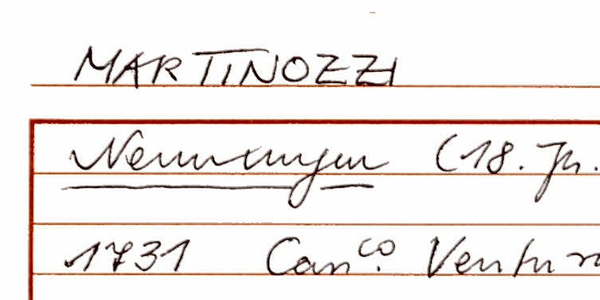 MARTINOZZI
Nennungen (18. Jh.
1731 Can.co Ventur